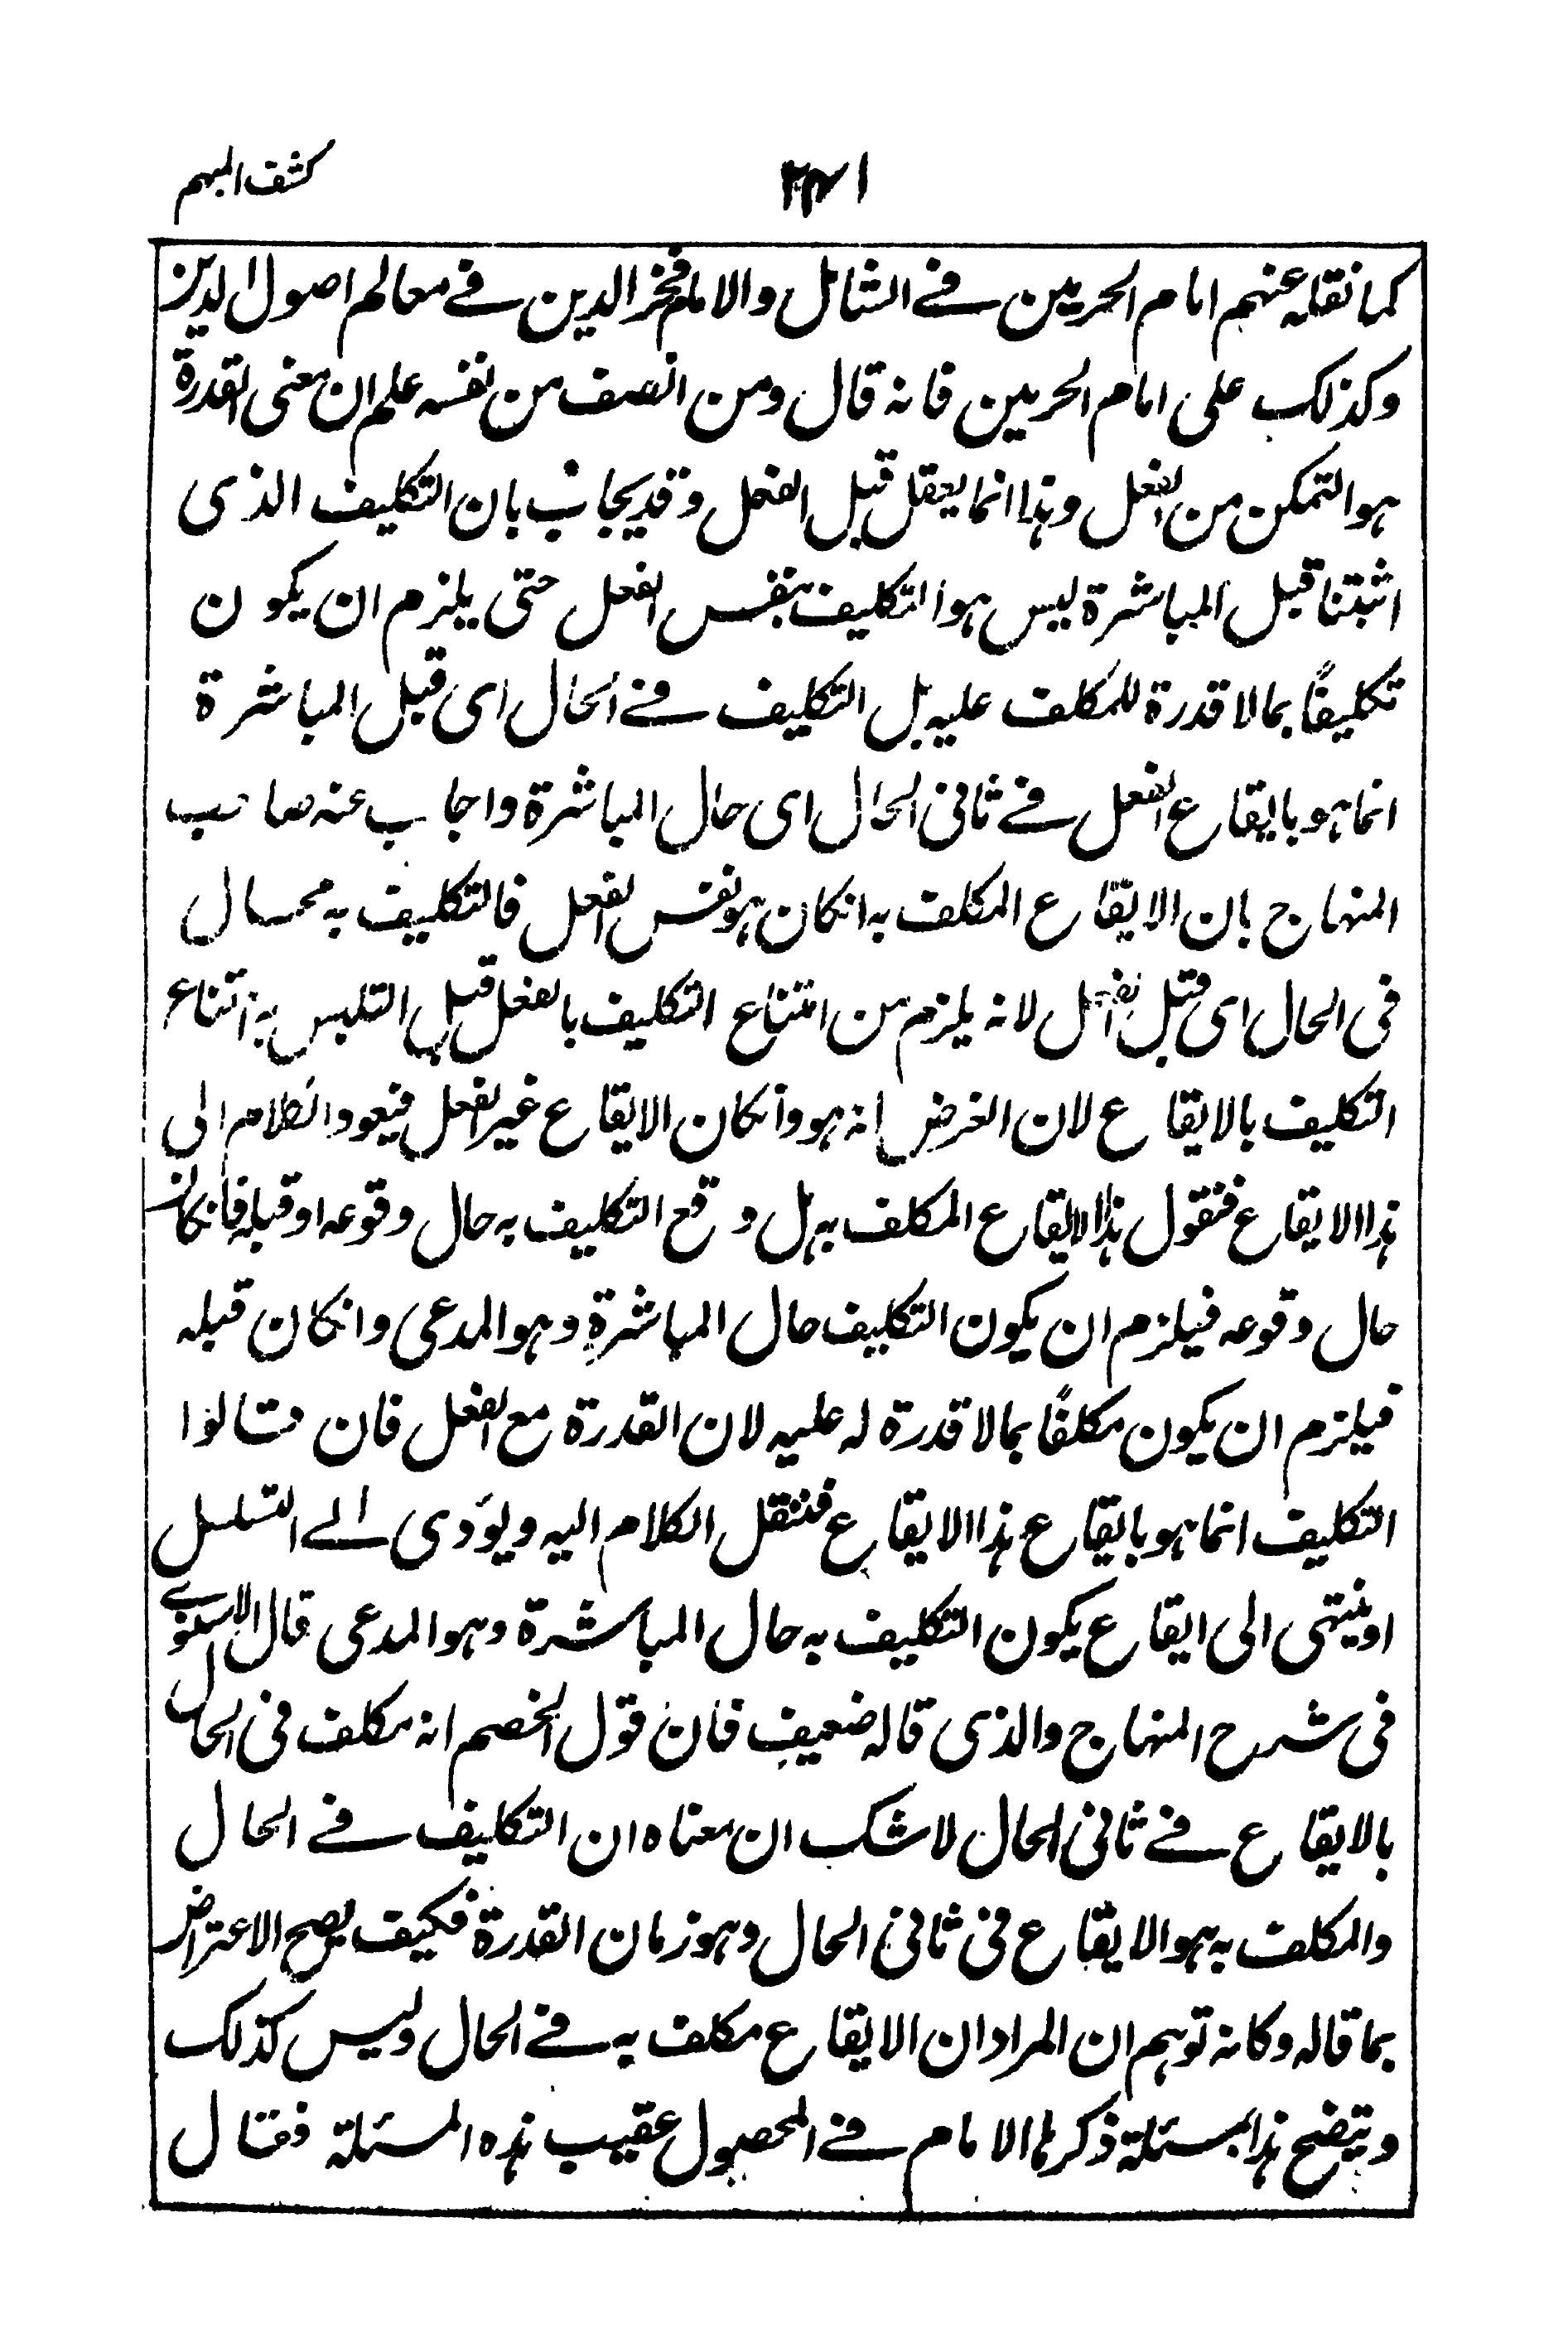 كشف المبهم
كما نقله عنهم امام الحرمين في الشامل والامام فخر الدين في معالم اصول الدين
وكذلك على امام الحرمين فانه قال ومن انصف من نفسه علم ان معنى القدرة
هو التمكن من الفعل وهذا انما يعقل قبل الفعل وقد يجاب بان التكليف الذى
اثبتنا قبل المباشرة ليس هو التكليف بنفس الفعل حتى يلزم ان يكون
تكليفًا بما لا قدرة للمكلف عليه بل التكليف في الحال اى قبل المباشرة
انما هو بايقاع الفعل في ثانى الحال اى حال المباشرة واجاب عنه صاحب
المنهاج بان الايقاع المكلف به انكان هو نفس الفعل فالتكليف به محال
فى الحال اى قبل الفعل لانه يلزم من امتناع التكليف بالفعل قبل التلبس به امتناع
التكليف بالايقاع لان الغرض انه هو وانكان الايقاع غير الفعل فيعود الكلام الى
هذا الايقاع فنقول هذا الايقاع المكلف به هل وقع التكليف به حال وقوعه او قبله فانكان
حال وقوعه فيلزم ان يكون التكليف حال المباشرة وهو المدعى وانكان قبله
فيلزم ان يكون مكلفًا بما لا قدرة له عليه لان القدرة مع الفعل فان قالوا
التكليف انما هو بايقاع هذا الايقاع فننقل الكلام اليه ويؤدى الے التسلسل
او ينتهى الى ايقاع يكون التكليف به حال المباشرة وهو المدعى قال الاسنوے
فى شرح المنهاج والذى قاله ضعيف فان قول الخصم انه مكلف فى الحال
بالايقاع في ثانى الحال لا شك ان معناه ان التكليف في الحال
والمكلف به هو الايقاع فى ثانى الحال وهو زمان القدرة فكيف يصح الاعتراض
بما قاله وكانه توهم ان المراد ان الايقاع مكلف به في الحال وليس كذلك
ويتضح هذا بمسئلة ذكرها الامام في المحصول عقيب هذه المسئلة فقال